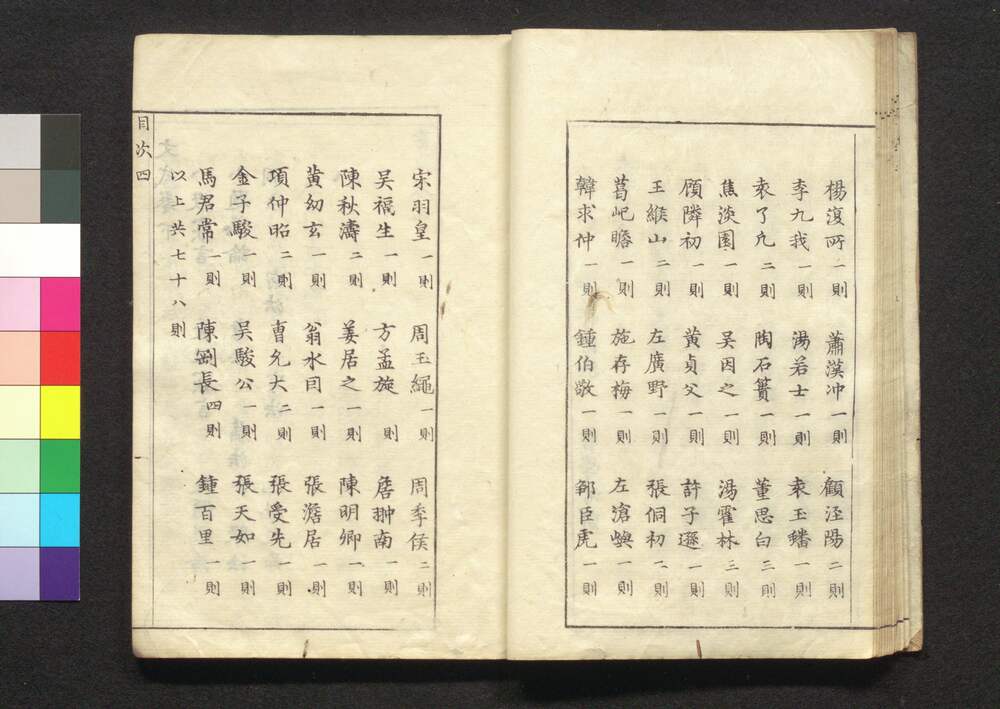 楊復所一則 蕭漢冲一則 顧涇陽二則
李九我一則 湯若士一則 袁玉蟠一則
袁了凡二則 陶石簣一則 董思白三則
焦淡園一則 吴因之一則 湯霍林三則
顧隣初一則 黄貞父一則 許子遜一則
王緱山二則 左廣野一則 張侗初一則
葛屺瞻一則 施存梅一則 左滄嶼一則
韓求仲一則 鍾伯敬一則 鄒臣虎一則
宋羽皇一則 周玉繩一則 周季侯二則
吴福生一則 方孟旋 則 詹翀南一則
陳秋濤二則 姜居之一則 陳明卿一則
黄幼玄一則 翁水因一則 張澹居一則
項仲昭二則 曹允大二則 張受先一則
金子駿一則 吴駿公一則 張天如一則
馬君常一則 陳㓻長四則 鍾百里一則
以上共七十八則
目次四